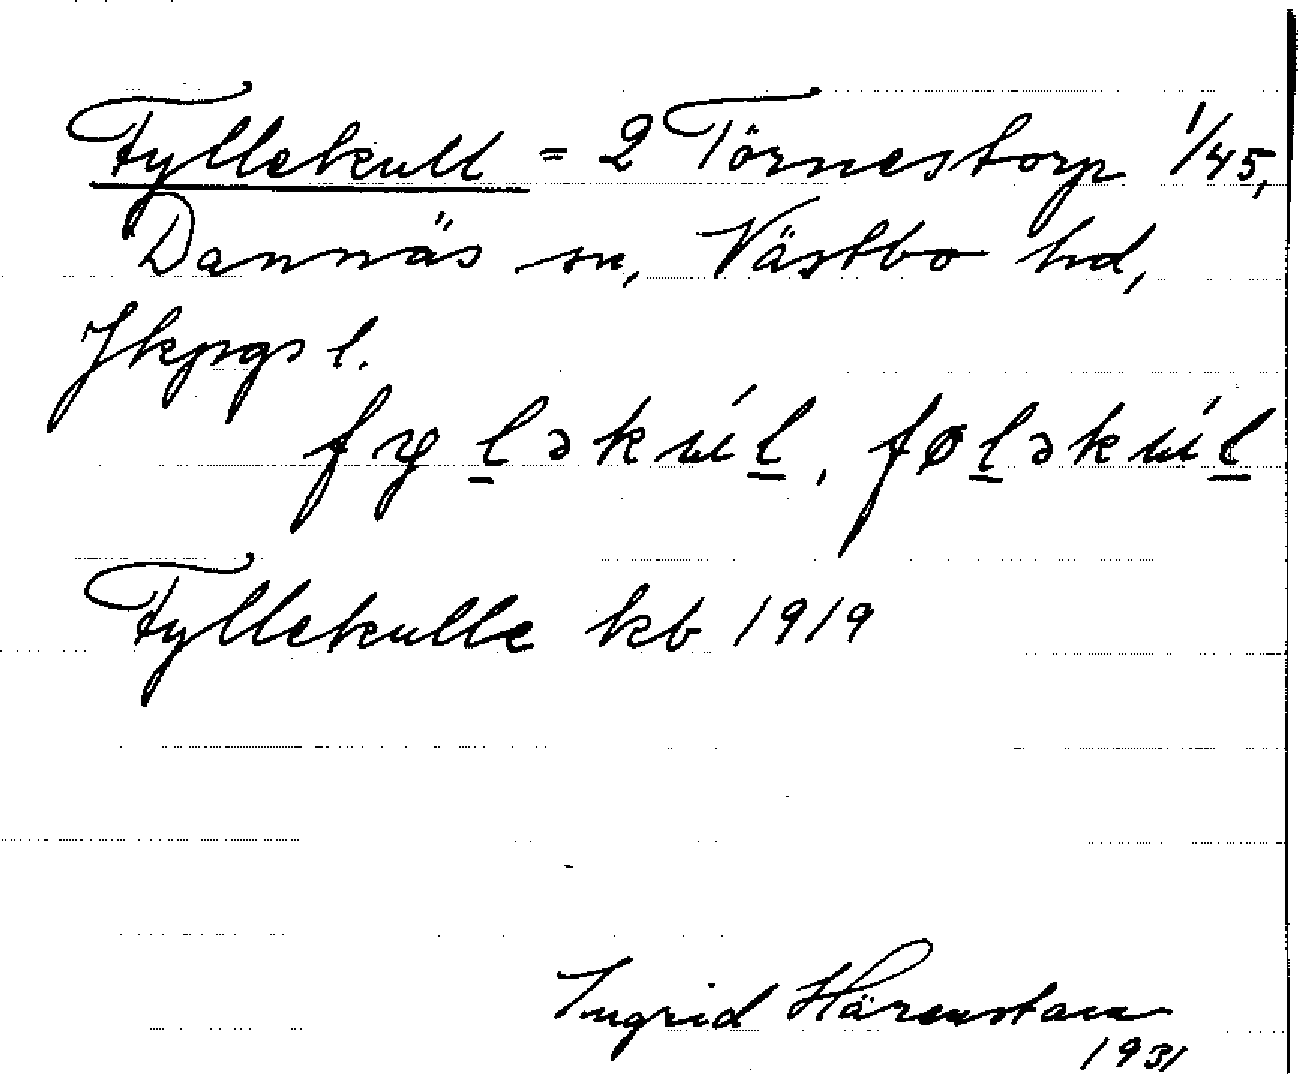 Fyllekull = 2 Törnestorp 1/45,
Dannäs sn, Västbo hd,
Jkpgs l.
fyl̲əkúl̲, føl̲əkúl̲
Fyllekulle kb 1919
Ingrid Härenstam
1931